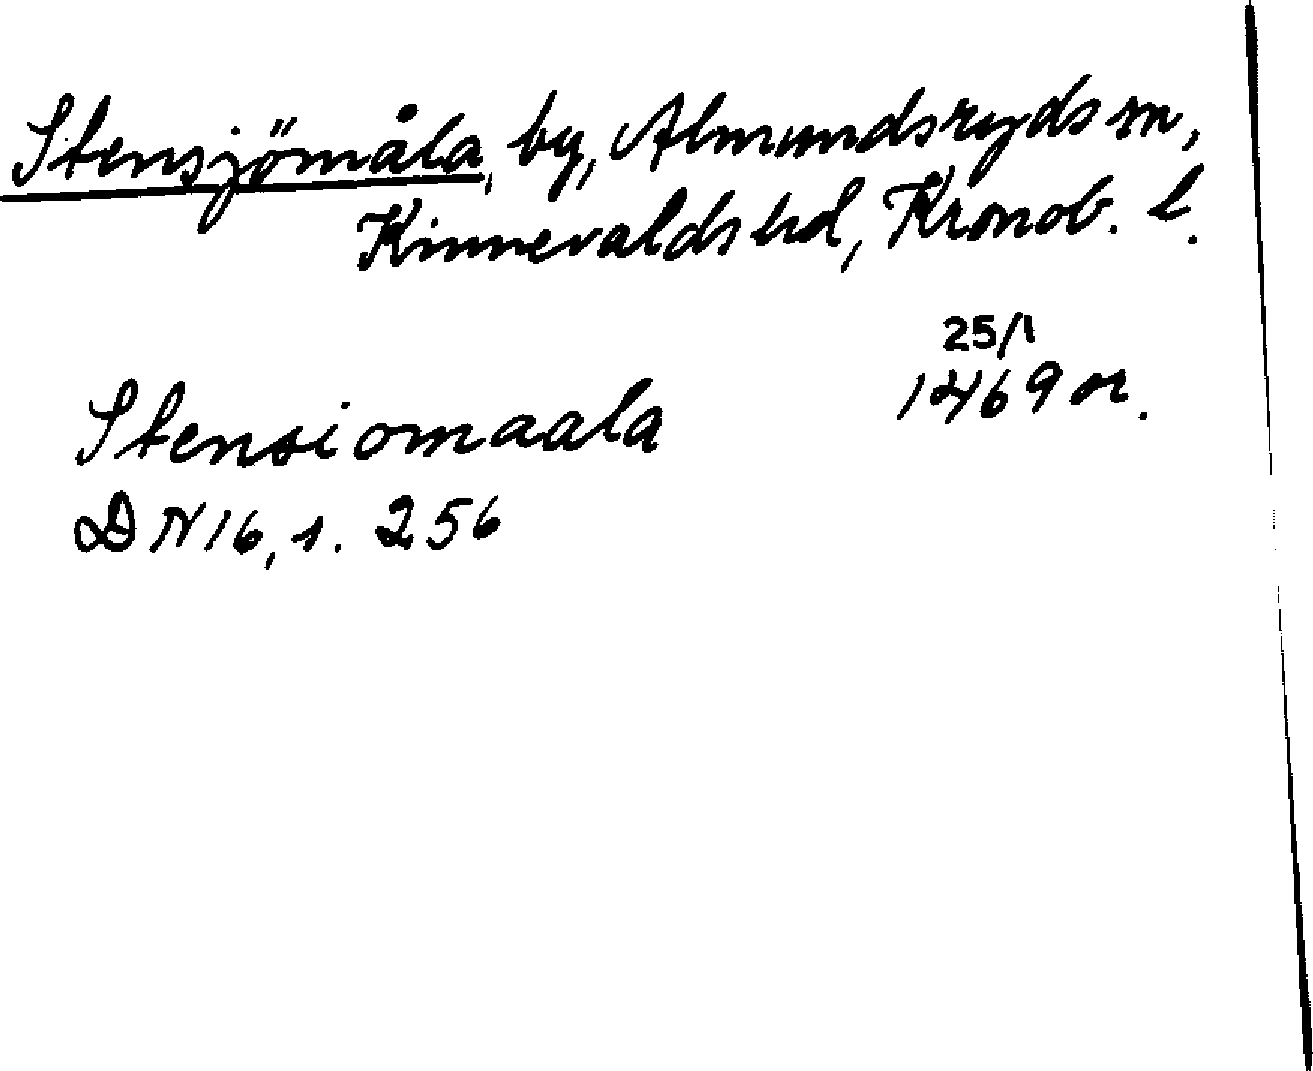 Stensjömåla, by, Almundsryds sn,
Kinnevalds hd, Kronob. l.
25/1
Stensiomaala 1469 or.
DN 16, s. 256